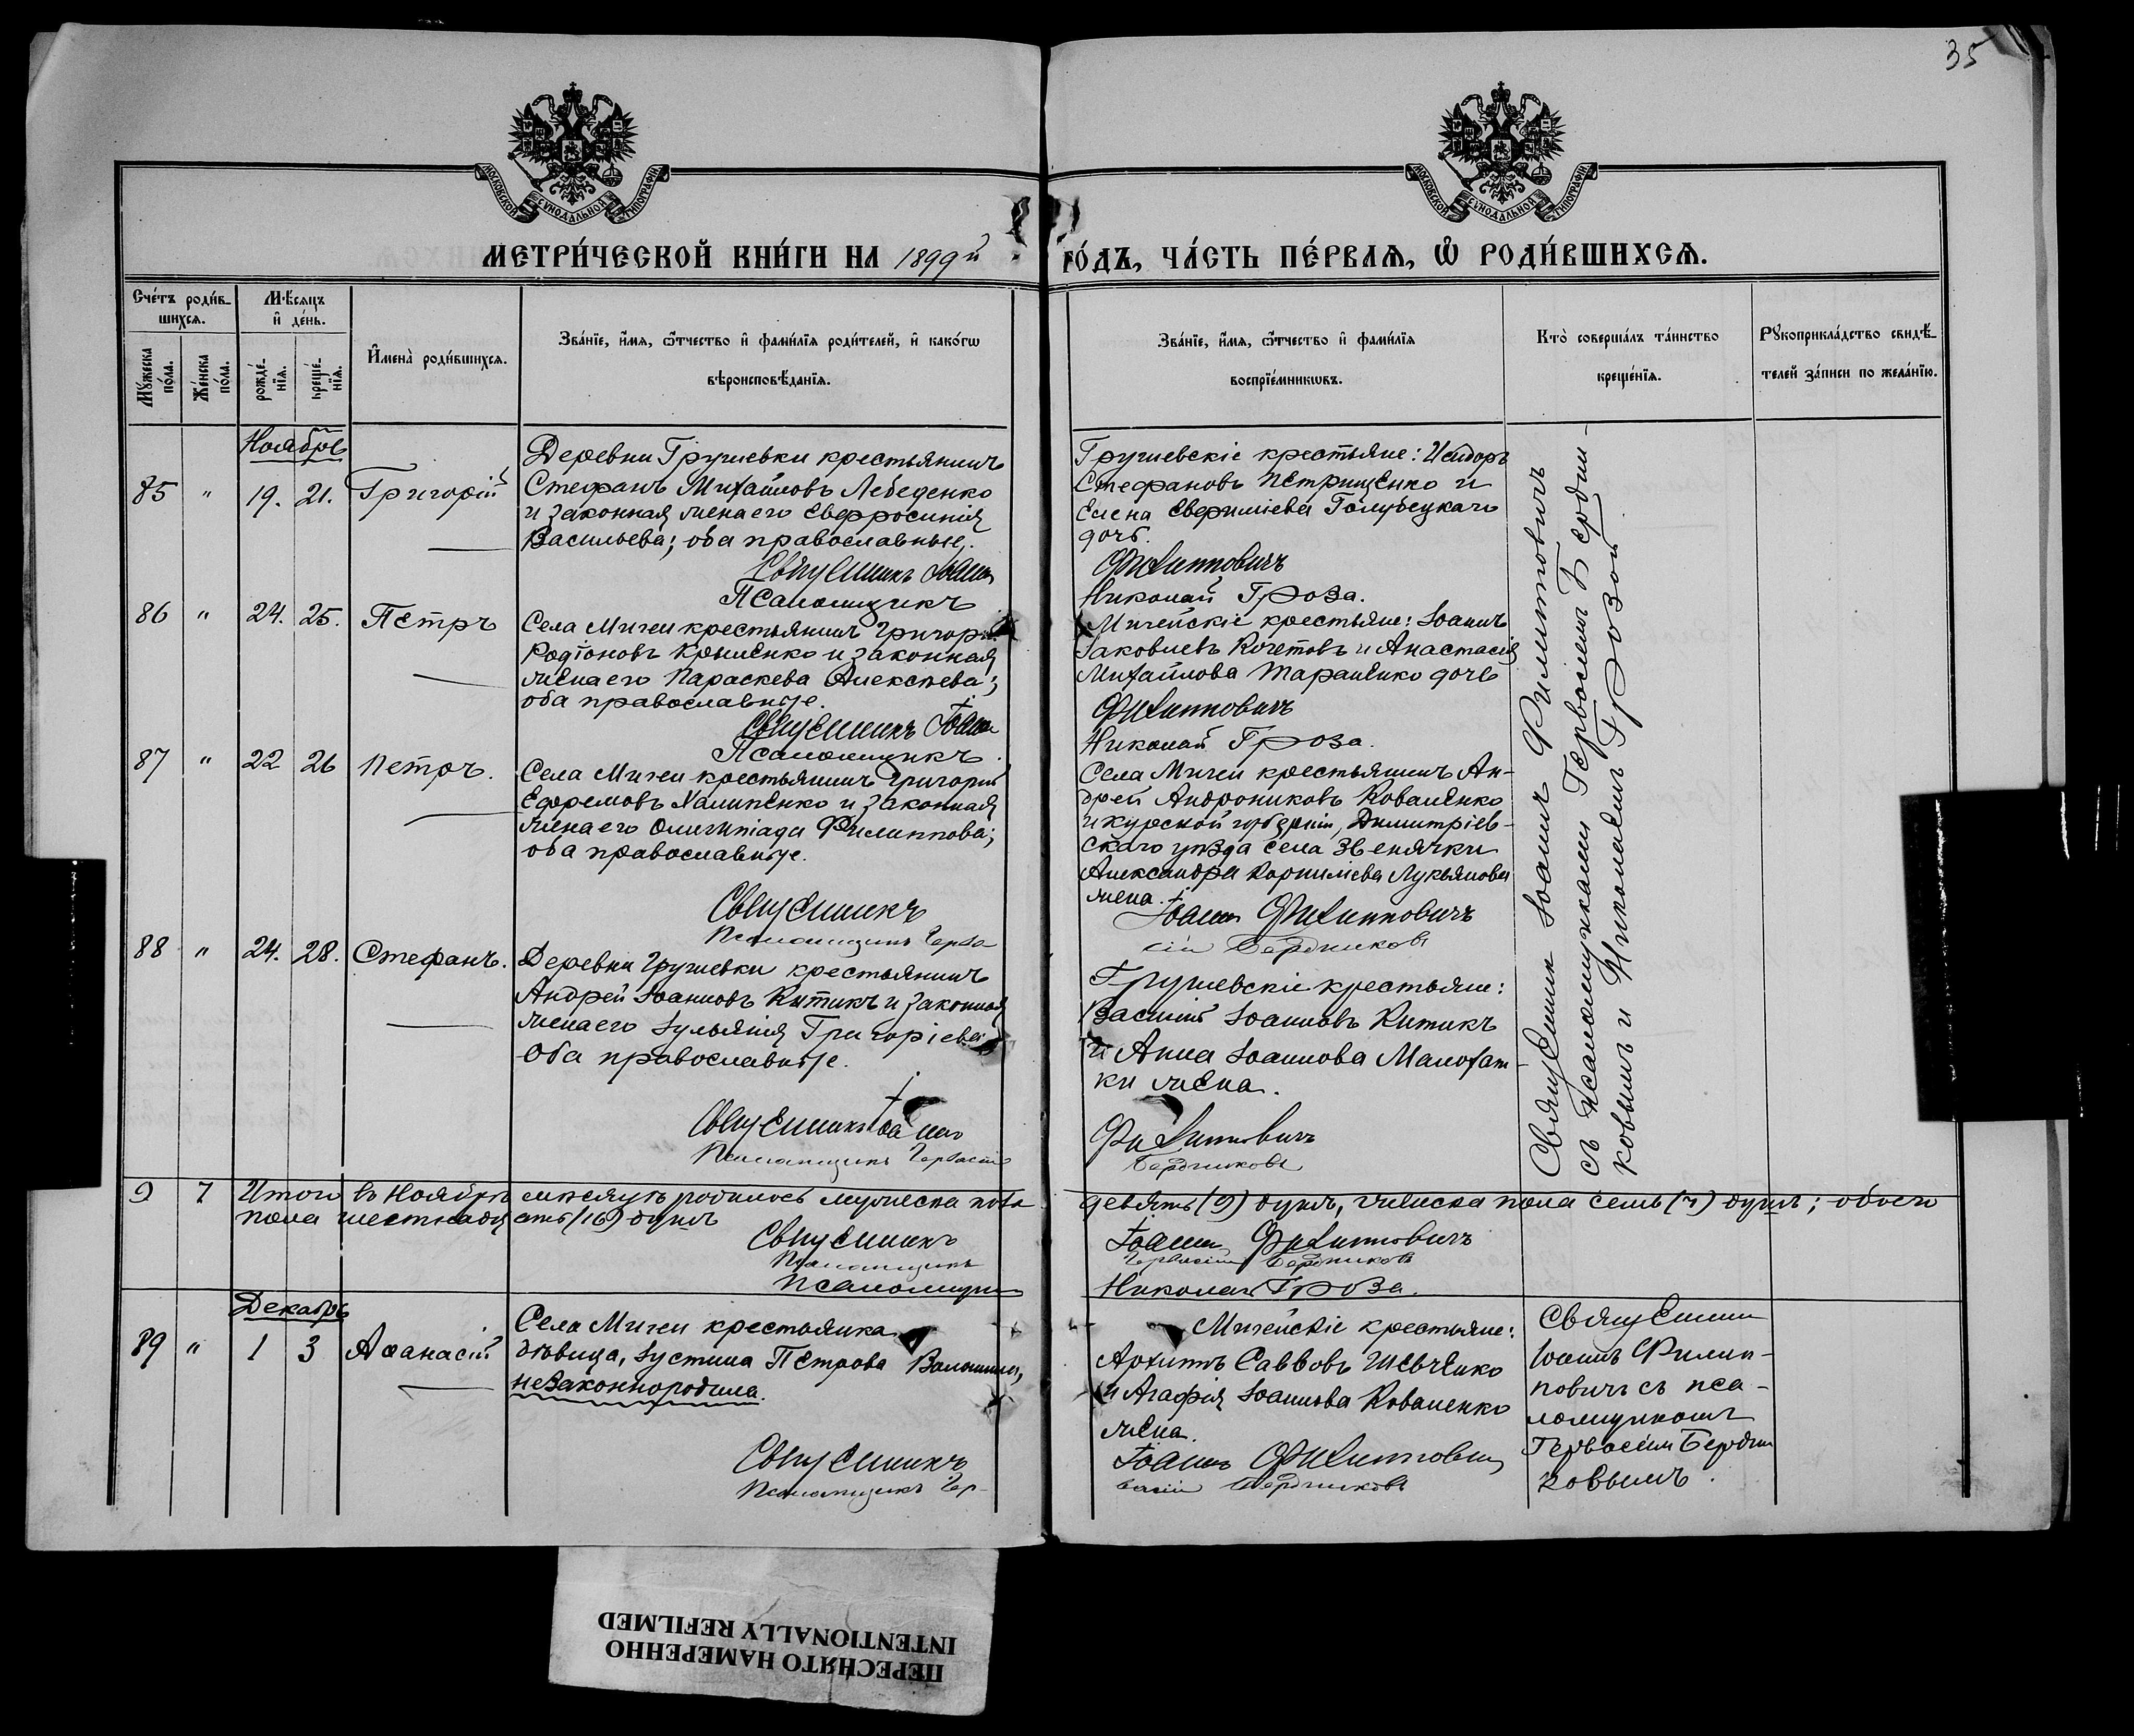 35
МОСКОВСКОЙ СѴНОДАЛЬНОЙ ТИПОГРАФІИ
МОСКОВСКОЙ СѴНОДАЛЬНОЙ ТИПОГРАФІИ
МЕТРИ́ЧЕСКОЙ КНИ́ГИ НА 1899й
ГО́ДЪ, ЧА́СТЬ ПЕ́РВАѦ, Ѡ҆ РОДИ́ВШИХСѦ.
Сче́тъ роди́в-
шихсѧ.
Мѣ́сѧцъ
и҆ де́нь.
Мꙋ́жеска
по́ла.
Же́нска
по́ла.
рожде́-
нїѧ.
креще́-
нїѧ.
И҆мена̀ роди́вшихсѧ.
Зва́нїе, и҆́мѧ, ѻ҆́тчество и҆ фами́лїѧ роди́телей, и҆ како́гѡ
вѣроисповѣ́данїѧ.
Зва́нїе, и҆́мѧ, ѻ҆́тчество и҆ фами́лїѧ
воспрїе́мникѡвъ.
Кто̀ соверша́лъ та́инство
креще́нїѧ.
Рꙋкоприкла́дство свидѣ́-
телей за́писи по жела́нїю.
Ноябрь
85 " 19. 21. Григорій
Деревни Грушевки крестьянинъ
Стефанъ Михайловъ Лебеденко
и законная жена его Евфросинія
Васильева; оба православные.
Священникъ Іоаннъ
Псаломщикъ
Грушевскіе крестьяне: Исидоръ
Стефановъ Петрищенко и
Елена Евфиміева Голубецкаго
дочь.
Филипповичъ
Николай Гроза.
86 " 24. 25. Петръ
Села Мигеи крестьянинъ Григорій
Родіоновъ Крыленко и законная
жена его Параскева Алексѣева;
оба православные.
Священникъ Іоаннъ
Псаломщикъ
Мигейскіе крестьяне: Іоаннъ
Іаковлевъ Кочетовъ и Анастасія
Михайлова Тараненко дочь
Филипповичъ
Николай Гроза.
87 " 22 26 Петръ.
Села Мигеи крестьянинъ Григорій
Ефремовъ Халипенко и законная
жена его Олимпіада Филиппова;
оба православные.
Священникъ
Псаломщикъ Герва
Села Мигеи крестьянинъ Ан-
дрей Андрониковъ Коваленко
и курской губерніи, Димитріев-
скаго уѣзда села Звенячки
Александра Корниліева Лукьянова
жена.
Іоаннъ Филипповичъ
сій Бердниковъ
88 " 24. 28. Стефанъ.
Деревни Грушевки крестьянинъ
Андрей Іоанновъ Китикъ и законная
жена его Іуліанія Григоріева
Оба православные.
Священникъ Іоаннъ
Псаломщикъ Гервасій
Грушевскіе крестьяне:
Василій Іоанновъ Китикъ
и Анна Іоаннова Малохат-
ки жена.
Филипповичъ
Бердниковъ
Священник Іоаннъ Филипповичъ
съ псаломщиками Гервасіемъ Бердни-
ковымъ и Николаемъ Грозой
9 7 Итого въ Ноябрѣ мѣсяцѣ родилось мужеска пола девять (9) душъ, женска пола семь (7) душъ; обоего
пола шестнадцать (16) душъ
Священникъ Іоаннъ Филипповичъ
Псаломщикъ Гервасій Бердниковъ
Псаломщикъ Николай Гроза.
Декабрь
89 " 1 3 Аѳанасій
Села Мигеи крестьянка
дѣвица, Іустина Петрова
незаконнородила.
Священникъ
Псаломщикъ Гер-
Мигейскіе крестьяне:
Архипъ Саввовъ Шевченко
и Агафія Іоаннова Коваленко
жена.
Іоаннъ Филипповичъ
васій Бердниковъ
Священникъ
Іоаннъ Филип-
повичъ съ пса-
ломщикомъ
Гервасіем Бердни
ковымъ.
ПЕРЕСНЯТО НАМЕРЕННО
INTENTIONALLY REFILMED